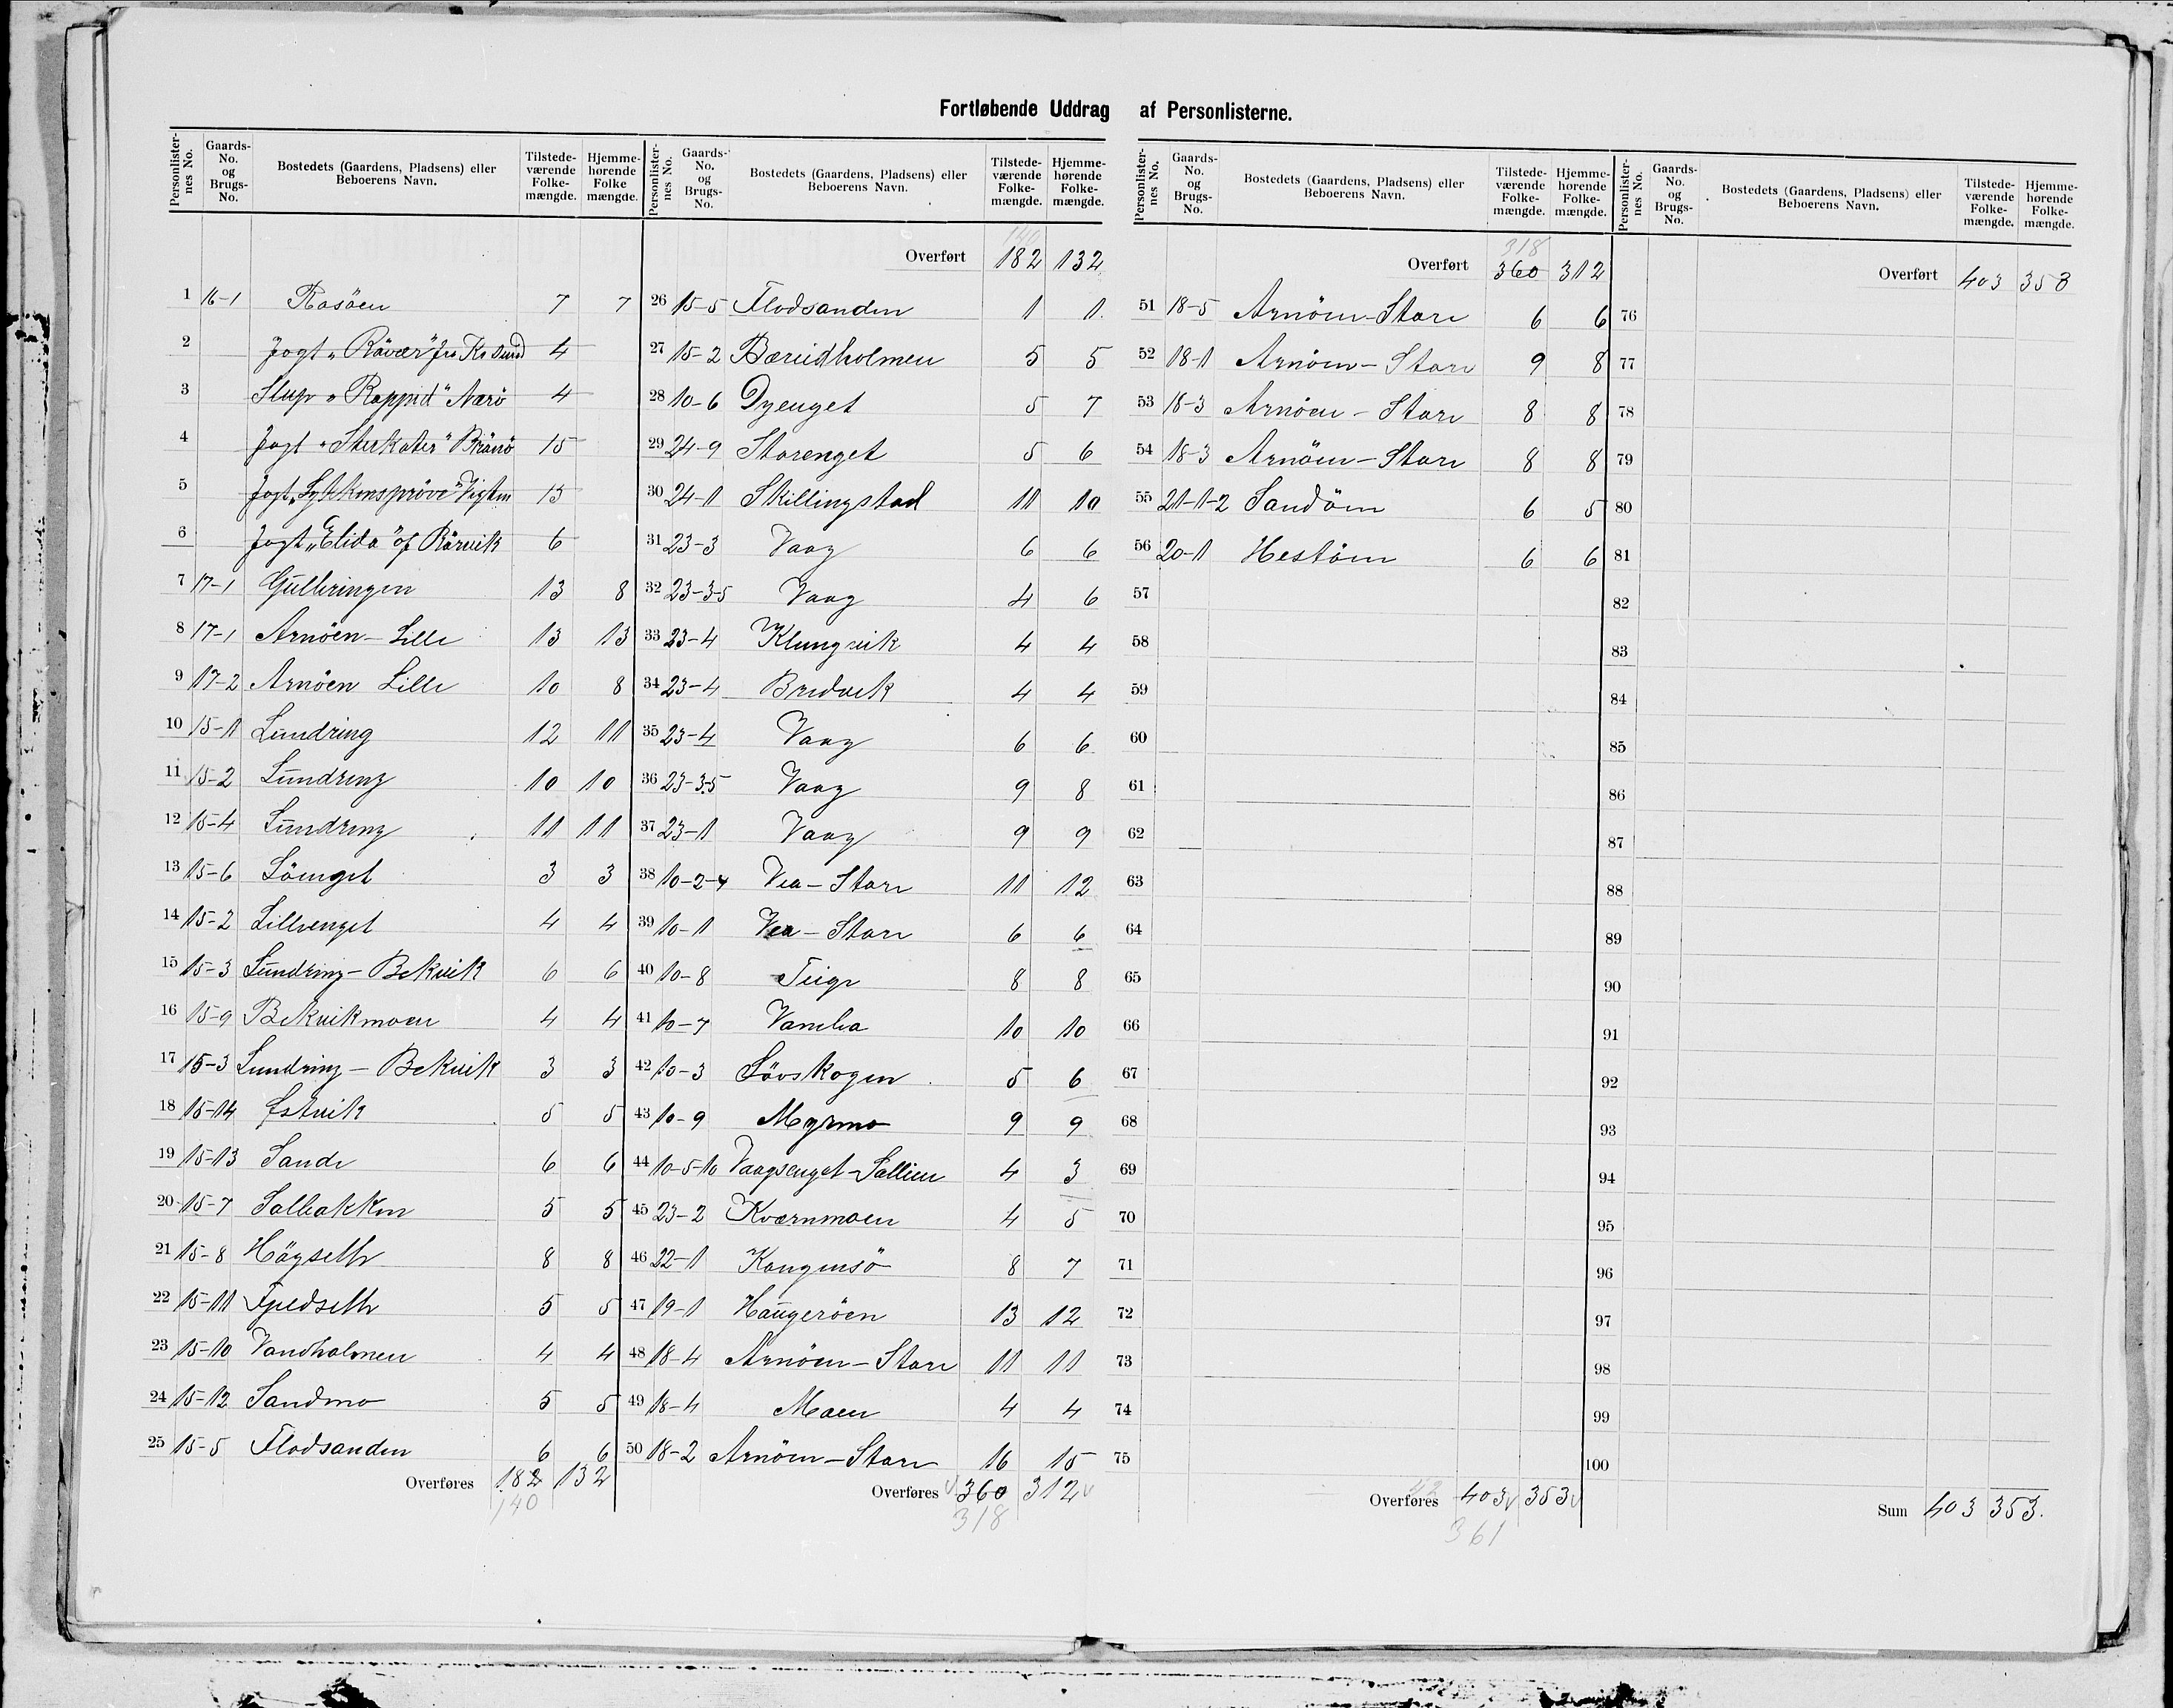 Fortløbende Uddrag af Personlisterne.
Personlisternes No. Gaards-No. og Brugs-No. Bostedets (Gaardens, Pladsens) eller Beboerens Navn. Tilstedeværende Folkemængde. Hjemmehørende Folke mængde.
1 16-1 Rosöen 7 7
2 Jagt „Rövær" fra 4
3 Slup „Rappid" Nærö 4
4 Jagt „Sterkoder" Brönö 15
5 Jagt „Lykkenspröve" Vigten 15
6 Jagt „Elida" af Rörvik 6
7 17-1 Gulleringen 13 8
8 17-1 Arnöen - Lille 13 13
9 17-2 Arnöen Lille 10 8
10 15-1 Lundring 12 11
11 15-2 Lundring 10 10
12 15-4 Lundring 11 11
13 15-6 Löenget 3 3
14 15-2 Lillevenget 4 4
15 15-3 Lundring - Bekvik 6 6
16 15-9 Bekvikmoen 4 4
17 15-3 Lundring - Bekvik 3 3
18 15-14 Estvik 5 5
19 15-13 Sande 6 6
20 15-7 Solbakken 5 5
21 15-8 Högseth 8 8
22 15-11 Fjeldseth 5 5
23 15-10 Vandholmen 4 4
24 15-12 Sandmo 5 5
25 15-5 Flodsanden 6 6
Overføres 182 132
140
Personlisternes No. Gaards-No. og Brugs-No. Bostedets (Gaardens, Pladsens) eller Beboerens Navn. Tilstedeværende Folkemængde. Hjemmehørende Folkemængde.
140
Overført 182 132
26 15-5 Flodsanden 1 1
27 15-2 Bærvidholmen 5 5
28 10-6 Dyenget 5 7
29 24-9 Storenget 5 6
30 24-1 Skillingstad 11 10
31 23-3 Vaag 6 6
32 23-3-5 Vaag 4 6
33 23-4 Klungvik 4 4
34 23-4 Bredvik 4 4
35 23-4 Vaag 6 6
36 23-3.5 Vaag 9 8
37 23-1 Vaag 9 9
38 10-2-4 Vea - Store 11 12
39 10-1 Vea - Store 6 6
40 10-8 Teige 8 8
41 10-7 10 10
42 10-3 Lövskogen 5 6
43 10-9 Myrmo 9 9
44 10-5-10 Vaagsenget - 4 3
45 23-2 Kværnmoen 4 5
46 22-1 Kongensö 8 7
47 19-1 Haugeröen 13 12
48 18-4 Arnöen - Store 11 11
49 18-4 Moen 4 4
50 18-2 Arnöen - Store 16 15
Overføres 360 312
318
Personlisternes No. Gaards-No. og Brugs-No. Bostedets (Gaardens, Pladsens) eller Beboerens Navn. Tilstedeværende Folkemængde. Hjemmehørende Folkemængde.
318
Overført 360 312
51 18-5 Arnöen - Store 6 6
52 18-1 Arnöen - Store 9 8
53 18-3 Arnöen - Store 8 8
54 18-3 Arnöen - Store 8 8
55 21-1-2 Sandöen 6 5
56 20-1 Hestöen 6 6
57
58
59
60
61
62
63
64
65
66
67
68
69
70
71
72
73
74
75
42
Overføres 403 353
361
Personlisternes No. Gaards-No. og Brugs-No. Bostedets (Gaardens, Pladsens) eller Beboerens Navn. Tilstedeværende Folkemængde. Hjemmehørende Folkemængde.
Overført 403 353
76
77
78
79
80
81
82
83
84
85
86
87
88
89
90
91
92
93
94
95
96
97
98
99
100
Sum 403 353.